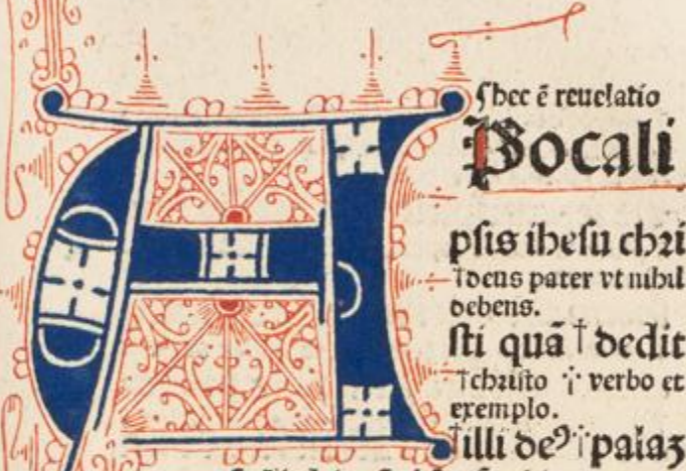 A
hec ē reuelatio
Pocali
psis ihesu chri
deus pater vt nihil
debens.
sti quā † dedit
†christo verbo et
exemplo.
illi deꝰ palaꝫ